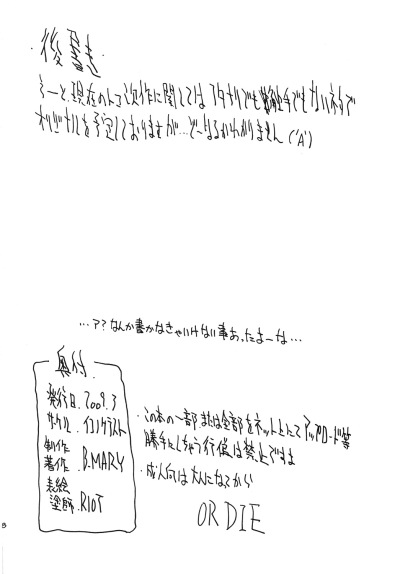 ・後書き・
えーと、現在のトコ次作に関しては フタナリでも触手でもないネタで
オリジナルを予定しておりますが…どーなるかわかりません('A`)
…ア?なんか書かなきゃいけない事あったよーな…
奥付
発行日.2009.3
サークル.イコノクラスト
制作
著作.B.MARY
表絵
塗師.RIOT
・この本の一部または全部をネット上にてアップロード等
勝手にしちゃう行使は禁止ですよ
・成人向は大人になってから
OR DIE